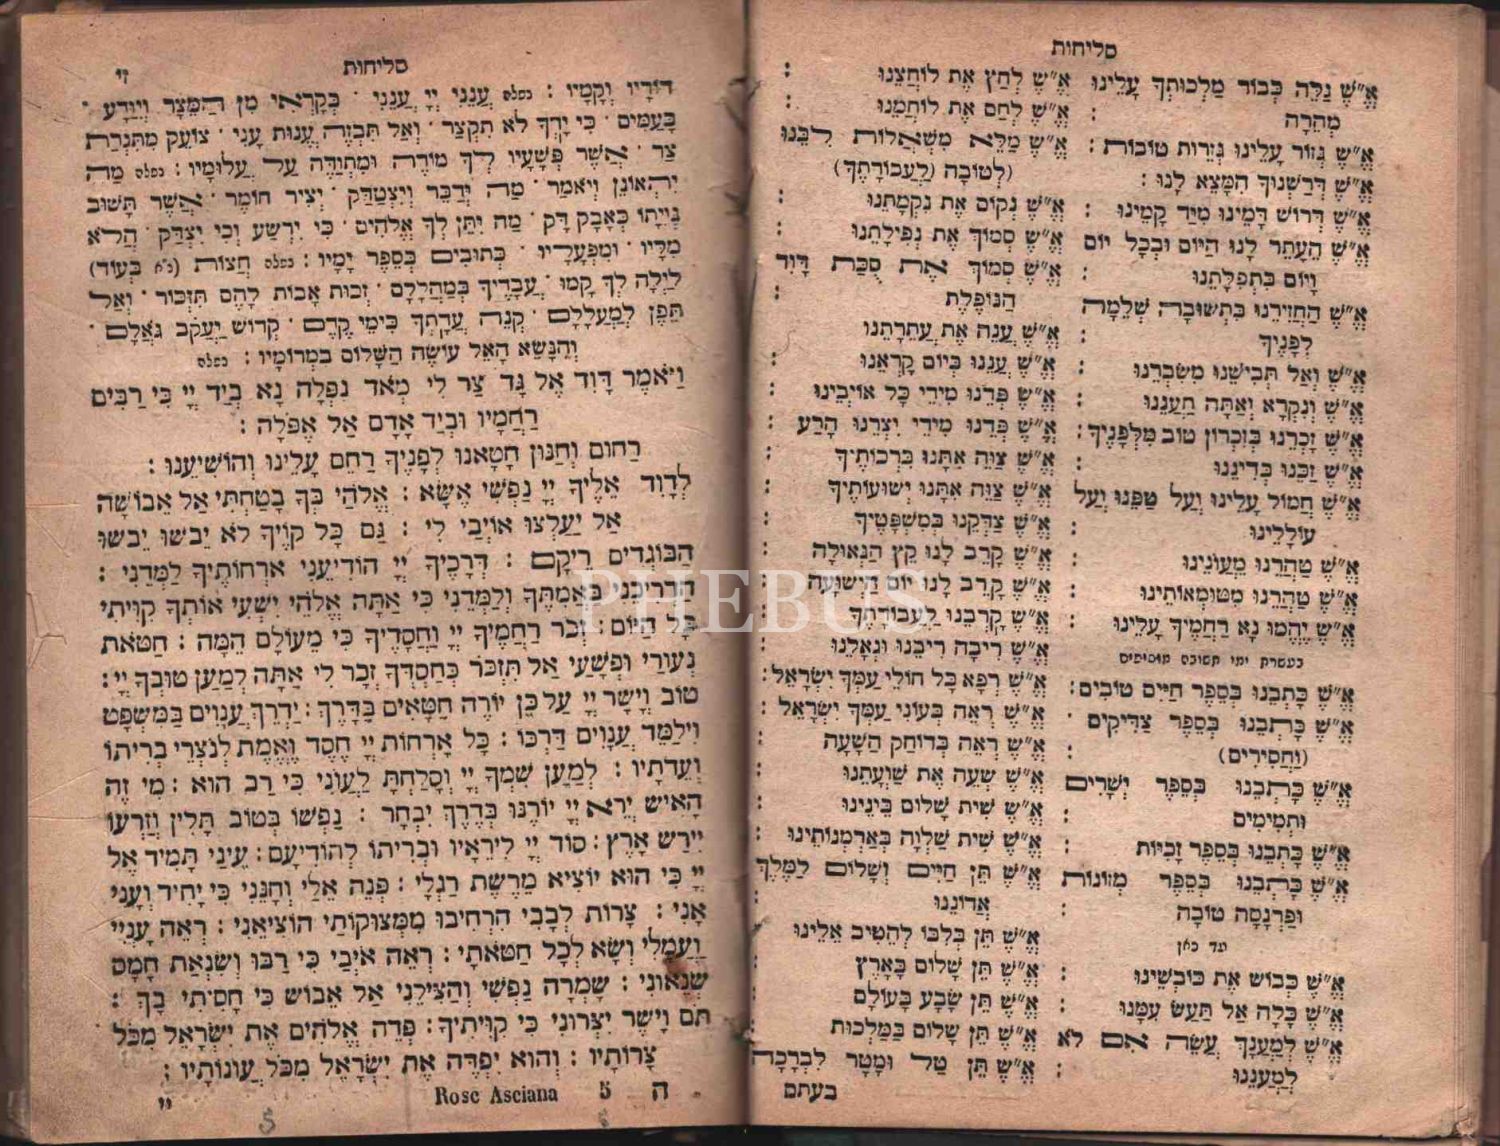 סליחות
א״ש נגלה כבוד מלכותך עלינו
מהרה :
א״ש גזור עלינו גזרות טובות :
א״ש דרשנוך המצא לנו :
א״ש דרוש דמינו מיד קמינו :
א״ש העתר לנו היום ובכל יום
ויום בתפלתנו :
א״ש החזירנו בתשובה שלמה
לפניך :
א״ש ואל תבישנו משברנו :
א״ש ונקרא ואתה תעננו :
א״ש זכרנו בזכרון טוב מלפניך :
א״ש זכנו בדיננו :
א״ש חמול עלינו ועל טפנו ועל
עוללינו :
א״ש טהרנו מעונינו :
א״ש טהרנו מטומאותינו :
א״ש יהמו נא רחמיך עלינו :
בעשרת ימי תשובה מוסיפים
א״ש כתבנו בספר חיים טובים :
א״ש כתבנו בספר צדיקים
(וחסידים) :
א״ש כתבנו בספר ישרים
ותמימים
א״ש כתבנו בספר זכיות :
א״ש כתבנו בספר מזונות
ופרנסה טובה :
עד כאן
א״ש כבוש את כובשינו :
א״ש כלה אל תעש עמנו :
א״ש למענך עשה אם לא
למעננו :
א״ש לחץ את לוחצנו :
א״ש לחם את לוחמנו :
א״ש מלא משאלות לבנו
לטובה (לעבודתך)
א״ש נקום את נקמתנו :
א״ש סמוך את נפילתנו :
א״ש סמוך את סכת דוד
הנופלת :
א״ש ענה את עתרתנו
א״ש עננו ביום קראנו :
א״ש פדנו מידי כל אויבינו :
א״ש פדנו מידי יצרנו הרע :
א״ש צוה אתנו ברכותיך :
א״ש צוה אתנו ישועותיך :
א״ש צדקנו במשפטיך :
א״ש קרב לנו קץ הגאולה :
א״ש קרב לנו יום הישועה :
א״ש קרבנו לעבודתך :
א״ש ריבה ריבנו וגאלנו :
א״ש רפא כל חולי עמך ישראל :
א״ש ראה בעוני עמך ישראל :
א״ש ראה בדוחק השעה :
א״ש שעה את שועתנו :
א״ש שית שלום בינינו :
א״ש שית שלוה בארמנותינו :
א״ש תן חיים ושלום למלך
אדוננו :
א״ש תן בלבו להטיב אלינו
א״ש תן שלום בארץ :
א״ש תן שבע בעולם :
א״ש תן שלום במלכות :
א״ש תן טל ומטר לברכה
בעתם
סליחות
דוריו וקמיו : כפלס ענני יי ענני · בקראי מן המצר ויודע ·
בעמים · כי ידך לא תקצר · ואל תבזה ענות עני · צועק מתגרת
צר · אשר פשעיו לך מודה ומתודה על עלומיו : כפלס מה
יתאונן ויאמר · מה ידבר ויצטדק · יציר חומר · אשר תשוב
גויתו כאבק דק · מה יתן לך אלהים · כי ירשע וכי יצדק · הלא
מליו · ומפעליו · כתובים בספר ימיו : כפלס חצות (נ״א בעוד)
לילה לך קמו · עבדיך במהללם · זכות אבות להם תזכור · ואל
תפן למעללם · קנה עדתך כימי קדם · קדוש יעקב גאלם ·
והנשא האל עושה השלום במרומיו : כפלס
ויאמר דוד אל גד צר לי מאד נפלה נא ביד יי כי רבים
רחמיו וביד אדם אל אפולה :
רחום וחנון חטאנו לפניך רחם עלינו והושיענו :
לדוד אליך יי נפשי אשא : אלהי בך בטחתי אל אבושה
אל יעלצו אויבי לי : גם כל קויך לא יבשו יבשו
הבוגדים ריקם : דרכיך יי הודיעני ארחותיך למדני :
הדריכני באמתך ולמדני כי אתה אלהי ישעי אותך קויתי
כל היום : זכר רחמיך יי וחסדיך כי מעולם המה : חטאת
נעורי ופשעי אל תזכר כחסדך זכר לי אתה למען טובך יי :
טוב וישר יי על כן יורה חטאים בדרך : ידרך ענוים במשפט
וילמד ענוים דרכו : כל ארחות יי חסד ואמת לנצרי בריתו
ועדתיו : למען שמך יי וסלחת לעוני כי רב הוא : מי זה
האיש ירא יי יורנו בדרך יבחר : נפשו בטוב תלין וזרעו
יירש ארץ : סוד יי ליראיו ובריתו להודיעם : עיני תמיד אל
יי כי הוא יוציא מרשת רגלי : פנה אלי וחנני כי יחיד ועני
אני : צרות לבבי הרחיבו ממצוקותי הוציאני : ראה עניי
ועמלי ושא לכל חטאתי : ראה איבי כי רבו ושנאת חמס
שנאוני : שמרה נפשי והצילני אל אבוש כי חסיתי בך :
תם וישר יצרוני כי קויתיך : פדה אלהים את ישראל מכל
צרותיו : והוא יפדה את ישראל מכל עונותיו :
ה 5 Rosc Asciana
PHEBUS